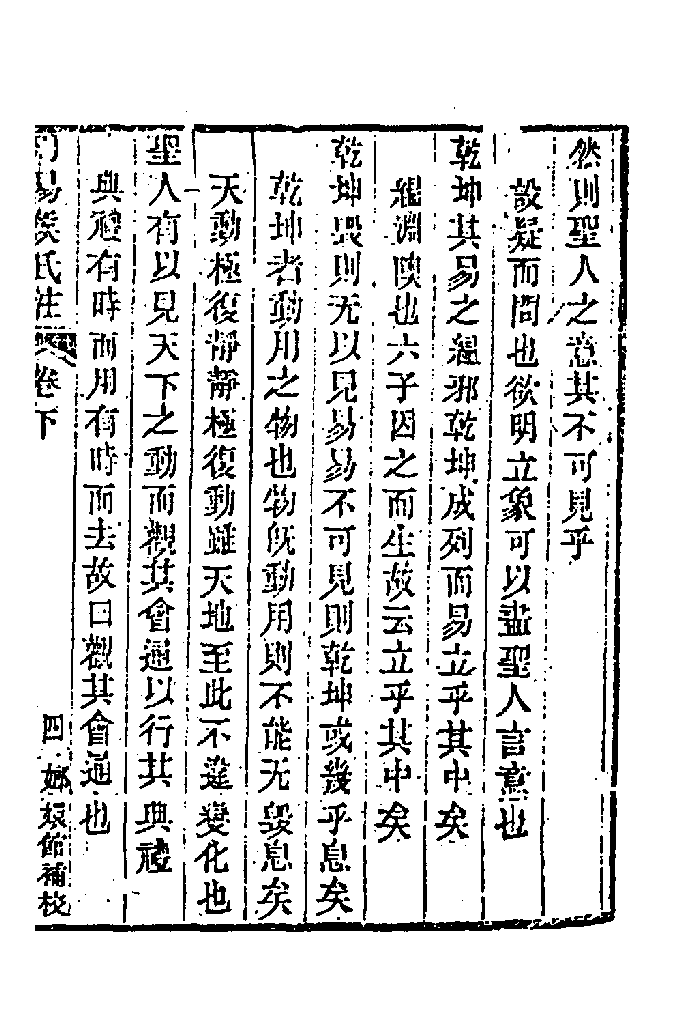 然則聖人之意其不可見乎
設疑而問也欲明立象可以盡聖人言意也
乾坤其易之縕邪乾坤成列而易立乎其中矣
縕淵隩也六子因之而生故云立乎其中矣
乾坤毀則无以見易易不可見則乾坤或幾乎息矣
乾坤者動用之物也物旣動用則不能无毀息矣
天動極復靜靜極復動雖天地至此不違變化也
聖人有以見天下之動而觀其會通以行其典禮
典禮有時而用有時而去故曰觀其會通也
周易侯氏註 卷下
四 嫏嬛館補校